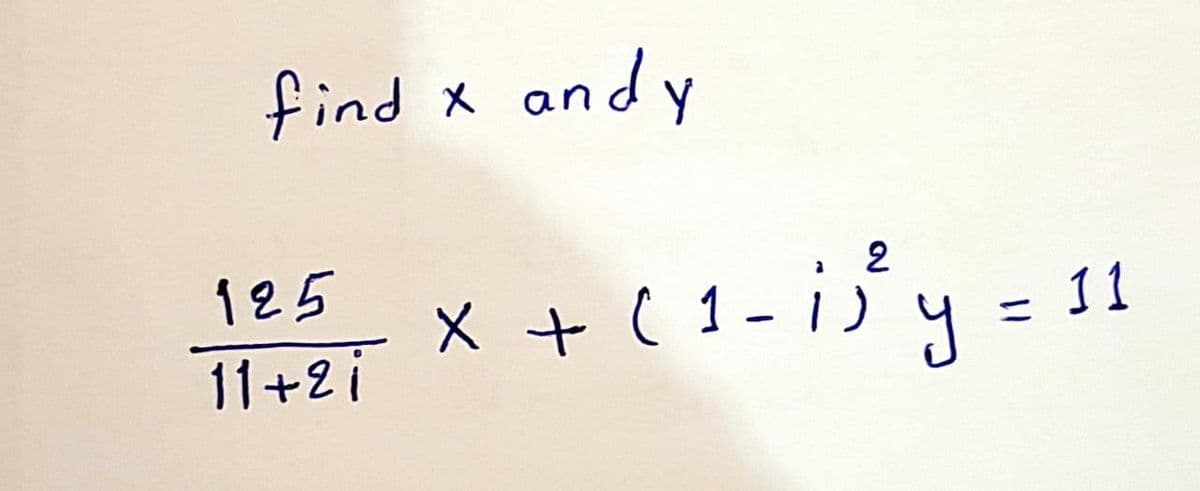 find x and y
125/(11+2i) x + (1-i)² y = 11